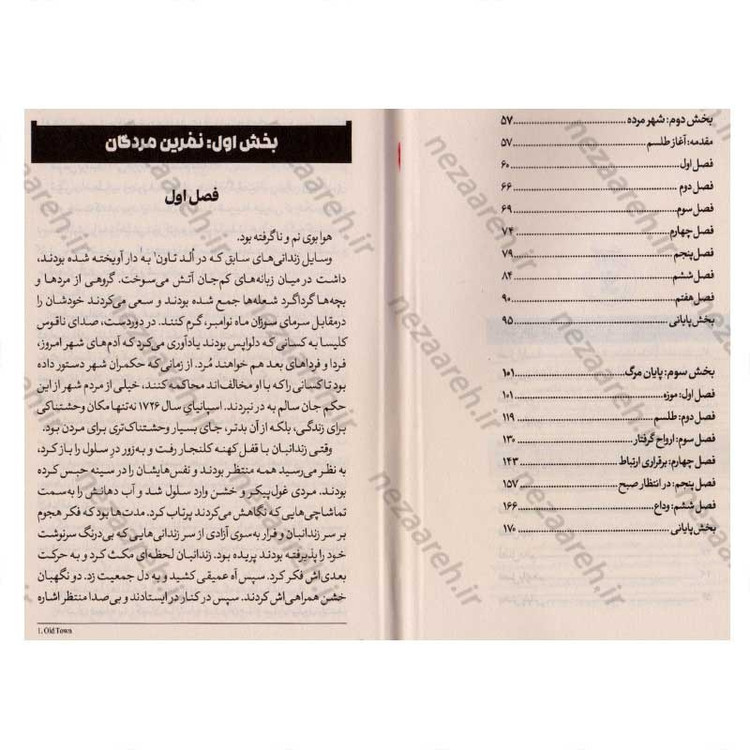 بخش دوم: شهر مرده ........ ۵۷
مقدمه: آغاز طلسم ........ ۵۷
فصل اول ........ ۶۰
فصل دوم ........ ۶۶
فصل سوم ........ ۶۹
فصل چهارم ........ ۷۴
فصل پنجم ........ ۷۹
فصل ششم ........ ۸۴
فصل هفتم ........ ۹۰
بخش پایانی ........ ۹۵
بخش سوم: پایان مرگ ........ ۱۰۱
فصل اول: موزه ........ ۱۰۱
فصل دوم: طلسم ........ ۱۱۹
فصل سوم: ارواح گرفتار ........ ۱۳۰
فصل چهارم: برقراری ارتباط ........ ۱۴۳
فصل پنجم: در انتظار صبح ........ ۱۵۷
فصل ششم: وداع ........ ۱۶۶
بخش پایانی ........ ۱۷۰
بخش اول: نفرین مردگان
فصل اول
هوا بوی نم و نا گرفته بود.
وسایل زندانی‌های سابق که در اُلد تاون¹ به دار آویخته شده بودند،
داشت در میان زبانه‌های کم‌جان آتش می‌سوخت. گروهی از مردها و
بچه‌ها گرداگرد شعله‌ها جمع شده بودند و سعی می‌کردند خودشان را
درمقابل سرمای سوزان ماه نوامبر، گرم کنند. در دوردست، صدای ناقوس
کلیسا به کسانی که دلواپس بودند یادآوری می‌کرد که آدم‌های شهر امروز،
فردا و فرداهای بعد هم خواهند مُرد. از زمانی که حکمران شهر دستور داده
بود تا کسانی را که با او مخالف‌اند محاکمه کنند، خیلی از مردم شهر از این
حکم جان سالم به در نبردند. اسپانیایِ سال ۱۷۲۶ نه‌تنها مکان وحشتناکی
برای زندگی، بلکه از آن بدتر، جای بسیار وحشتناک‌تری برای مردن بود.
وقتی زندانبان با قفل کهنه کلنجار رفت و به‌زور درِ سلول را باز کرد،
به نظر می‌رسید همه منتظر بودند و نفس‌هایشان را در سینه حبس کرده
بودند. مردی غول‌پیکر و خشن وارد سلول شد و آب دهانش را به‌سمت
تماشاچی‌هایی که نگاهش می‌کردند پرتاب کرد. مدت‌ها بود که فکر هجوم
بر سر زندانبان و فرار به‌سوی آزادی از سر زندانی‌هایی که بی‌درنگ سرنوشت
خود را پذیرفته بودند پریده بود. زندانبان لحظه‌ای مکث کرد و به حرکت
بعدی اش فکر کرد. سپس آه عمیقی کشید و به دل جمعیت زد. دو نگهبان
خشن همراهی‌اش کردند. سپس در کنار در ایستادند و بی‌صدا منتظر اشاره
1. Old Town
nezaareh.ir